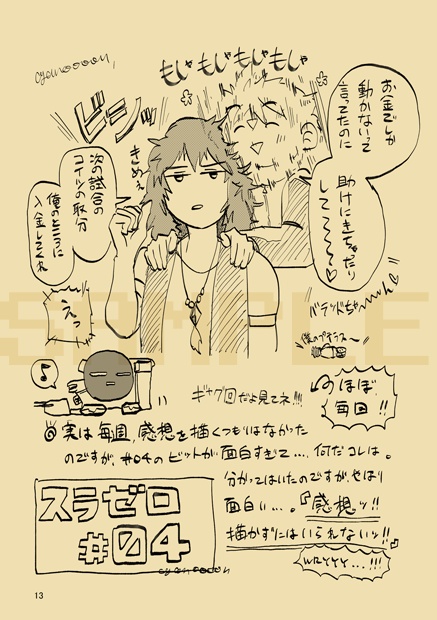 cyanooooon,
もじゃもじゃもじゃもじゃ
お金でしか
動かないって
言ってたのに
助けにきちゃったり
して〜〜〜♡
バテッドちゃ〜〜ん♡
ビシッ
きめぇ
次の試合の
コイツの取分
俺のところに
入金してくれ
えっ
SAMPLE
♪
ギャグ回だよ見てネ!!!
ほぼ
毎回!!
◎実は毎週、感想を描くつもりはなかった
のですが、#04のビットが面白すぎて…。何だコレは。
分かってはいたのですが、やはり
面白い…。『感想ッ!!
描かずにはいられないッ!!』
WRYYY…!!!
スラゼロ
#04
cyanooooon
13